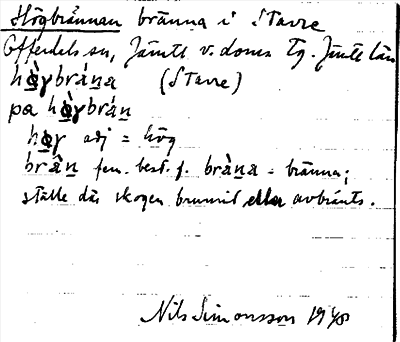 Högbrännan bränna i Stavre
Offerdals sn, Jämtl. v. doms Tg. Jämtl. län
hø̀γbràna (Stavre)
pa hø̀γbrán
høγ adj = hög
brân fem. best. f. bràna = bränna;
ställe där skogen brunnit eller avbränts.
Nils Simonsson 1948